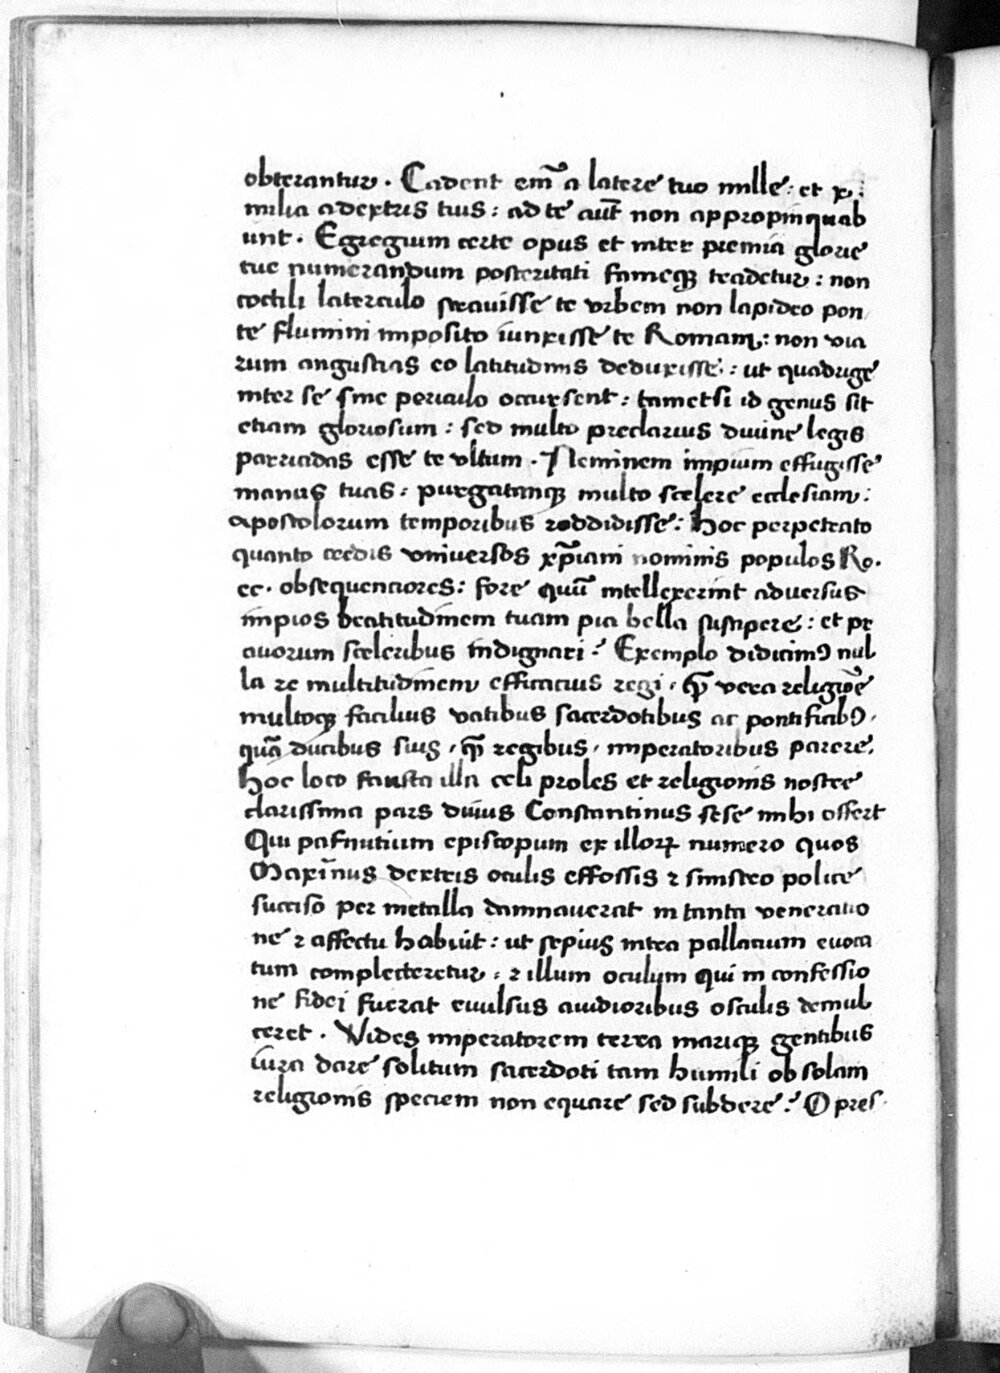 obterantur . Cadent em̄ a latere tuo mille : et x .
milia a dextris tuis : ad te aūt non appropinquab
unt . Egregium certe opus et inter premia glorie
tue numerandum posteritati fameqꝫ tradetur : non
coctili laterculo stravisse te urbem non lapideo pon
te flumini imposito iunxisse te Romam : non via
rum angustias eo latitudinis deduxisse : ut quadrige
inter se sine periculo occursent : tametsi id genus sit
etiam gloriosum : sed multo preclarius divine legis
parricidas esse te ultum . Neminem impium effugisse
manus tuas : purgatamqꝫ multo scelere ecclesiam :
apostolorum temporibus reddidisse : Hoc perpetrato
quanto credis universos xp̄iani nominis populos Ro .
ec . obsequenciores : fore quū intellexerint adversus
impios beatitudinem tuam pia bella suscipere : et pr
avorum sceleribus indignari ? Exemplo didicimꝰ nul
la re multitudinem efficacius regi , qꝫ vera religiōe
multoqꝫ facilius vatibus sacerdotibus ac pontificibꝰ ,
quā ducibus suis , qꝫ regibus , imperatoribus parere .
Hoc loco fausta illa celi proles et religionis nostre
clarissima pars divus Constantinus sese mihi offert
Qui pafnutium episcopum ex illoꝝ numero quos
Maxim̄nus dextris oculis effossis ⁊ sinistro police
succiso per metalla damnaverat in tanta veneratio
ne ⁊ affectu habuit : ut sepius intra pallatium evoca
tum complecteretur : ⁊ illum oculum qui in confessio
ne fidei fuerat evulsus avidioribus osculis demul
ceret . Vides imperatorem terra mariqꝫ gentibus
iura dare solitum sacerdoti tam humili ob solam
religionis speciem non equare sed subdere ? O pres